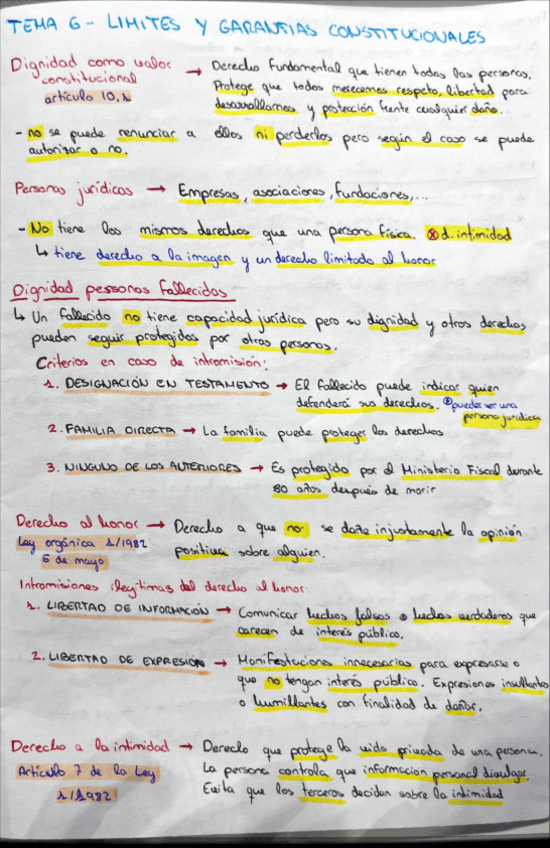 TEMA 6 - LIMITES Y GARANTIAS CONSTITUCIONALES
Dignidad como valor constitucional → Derecho fundamental que tienen todas las personas.
artículo 10.1
Protege que todos merecemos respeto, libertad para
desarrollarnos y protección frente cualquier daño.
- no se puede renunciar a ellos ni perderlos pero según el caso se puede
autorizar o no.
Personas jurídicas → Empresas, asociaciones, fundaciones,...
- No tiene los mismos derechos que una persona física. ⊗ d. intimidad
↳ tiene derecho a la imagen y un derecho limitado al honor
Dignidad personas fallecidas
↳ Un fallecido no tiene capacidad jurídica pero su dignidad y otros derechos,
pueden seguir protegidos por otras personas.
Criterios en caso de intromisión:
1. DESIGNACIÓN EN TESTAMENTO → El fallecido puede indicar quien
defenderá sus derechos. puede ser una
persona jurídica
2. FAMILIA DIRECTA → La familia puede proteger los derechos
3. NINGUNO DE LOS ANTERIORES → Es protegido por el Ministerio Fiscal durante
80 años después de morir
Derecho al honor → Derecho a que no se dañe injustamente la opinión
Ley orgánica 1/1982
positiva sobre alguien.
5 de mayo
Intromisiones ilegítimas del derecho al honor:
1. LIBERTAD DE INFORMACIÓN → Comunicar hechos falsos o hechos verdaderos que
carecen de interés público.
2. LIBERTAD DE EXPRESIÓN → Manifestaciones innecesarias para expresarse o
que no tengan interés público. Expresiones insultantes
o humillantes con finalidad de dañar.
Derecho a la intimidad → Derecho que protege la vida privada de una persona.
Artículo 7 de la Ley
1/1982
La persona controla que información personal divulgar.
Evita que los terceros decidan sobre la intimidad